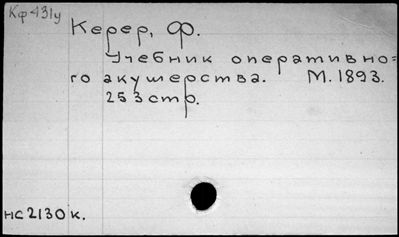 Кф431у
Керер, Ф.
Учебник оперативно=
го акушерства. М. 1893.
253 стр.
нс2130к.